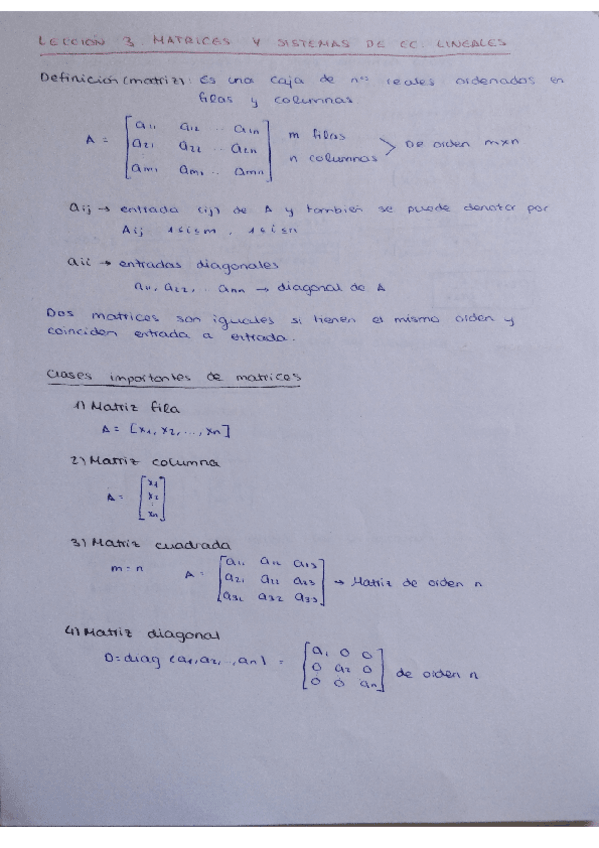 LECCIÓN 3 MATRICES Y SISTEMAS DE EC. LINEALES
Definición (matriz): Es una caja de nos reales ordenados en
filas y columnas
A = [a11 a12 ... a1n
a21 a22 ... a2n
am1 am1 ... amn] m filas n columnas > De orden m×n
aij → entrada (ij) de A y también se puede denotar por
Aij 1≤i≤m, 1≤i≤n
aii → entradas diagonales
a11, a22, ... ann → diagonal de A
Dos matrices son iguales si tienen el mismo orden y
coinciden entrada a entrada.
Clases importantes de matrices
1) Matriz fila
A = [x1, x2, ..., xn]
2) Matriz columna
A = [x1
x2
:
xn]
3) Matriz cuadrada
m = n A = [a11 a12 a13
a21 a22 a23
a31 a32 a33] → Matriz de orden n
4) Matriz diagonal
D = diag (a1, a2, ..., an) = [a1 0 0
0 a2 0
0 0 an] de orden n